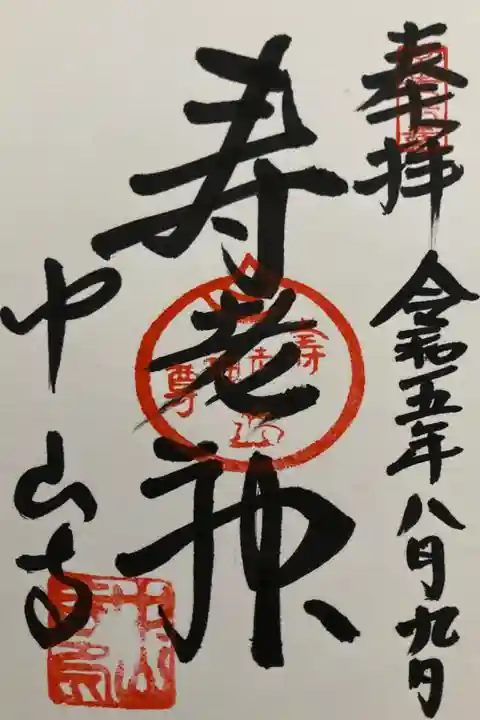 奉拝 令和五年八月九日
寿老神
中山寺